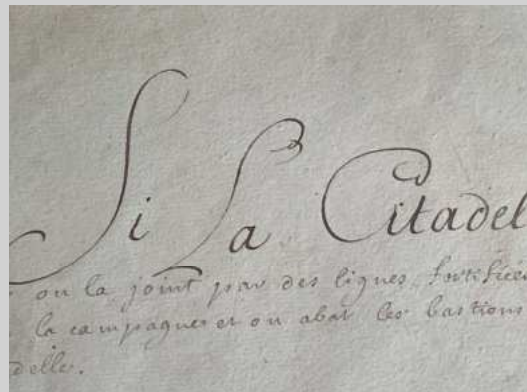 Si La Citadel
on la joint par des lignes fortifiées
la campagne et on abat les bastions
delle.